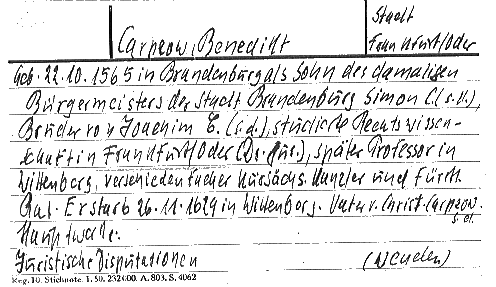 Carpzow, Benedikt
Stadt
Frankfurt/Oder
Geb. 22.10.1565 in Brandenburg als Sohn des damaligen
Bürgermeisters der Stadt Brandenburg Simon C. (s.d.),
Bruder von Joachim C. (s.d.), studierte Rechtswissen-
schaft in Frankfurt/Oder (Dr. jur.), später Professor in
Wittenberg, verschiedentlicher Kursächs. Kanzler und fürstl.
Rat. Er starb 26.11.1624 in Wittenberg. Vater v. Christ. Carpzow
s.d.
Juristische Disputationen
(Neuden)
Reg. 10. Stichnote. 1. 50. 232400. A. 803, S. 4062